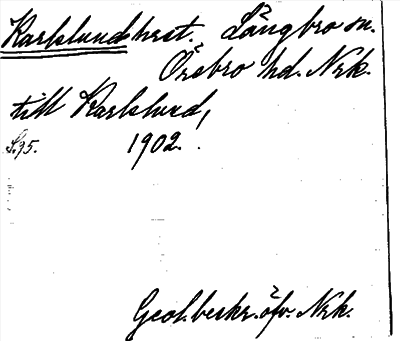 Karlslund hvst. Längbro sn.
Örebro hd. Nrk.
till Karlslund,
S. 95. 1902.
Geol. beskr. öfv. Nrk.